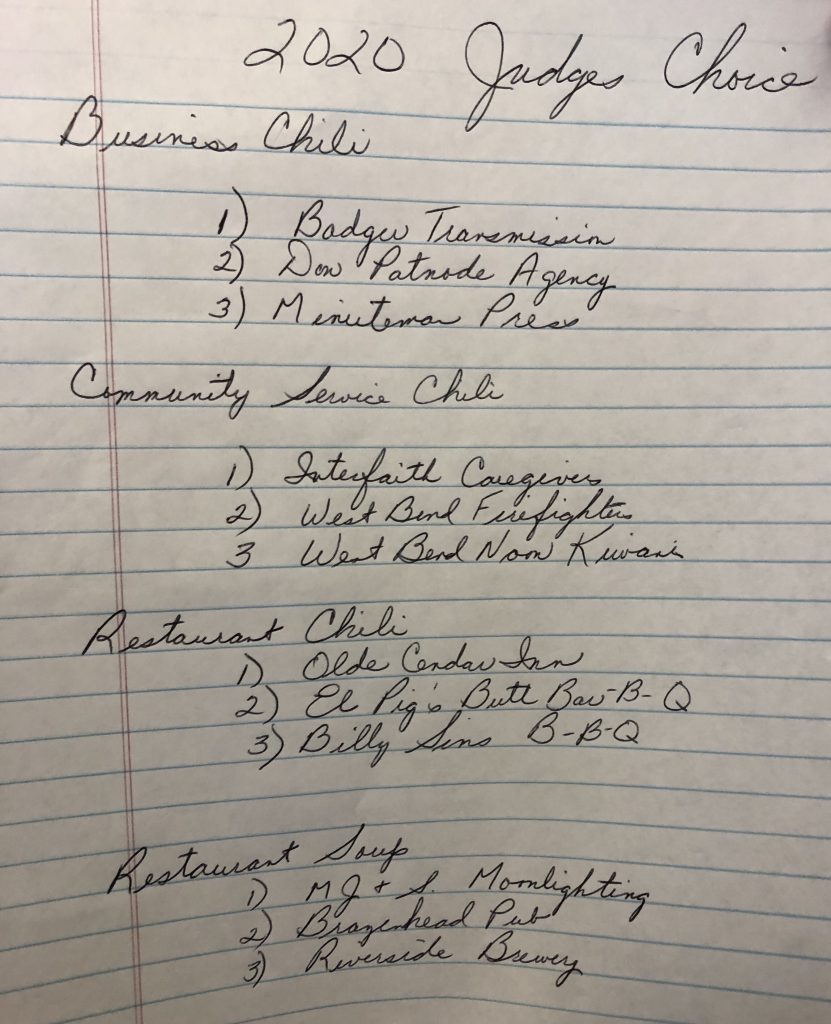 2020 Judges Choice
Business Chili
1) Badger Transmission
2) Don Patnode Agency
3) Minuteman Press
Community Service Chili
1) Interfaith Caregivers
2) West Bend Firefighters
3 West Bend Noon Kiwanis
Restaurant Chili
1) Olde Cendar Inn
2) El Pig's Butt Bar-B-Q
3) Billy Sins B-B-Q
Restaurant Soup
1) MJ + S. Moonlighting
2) Brazenhead Pub
3) Riverside Brewery